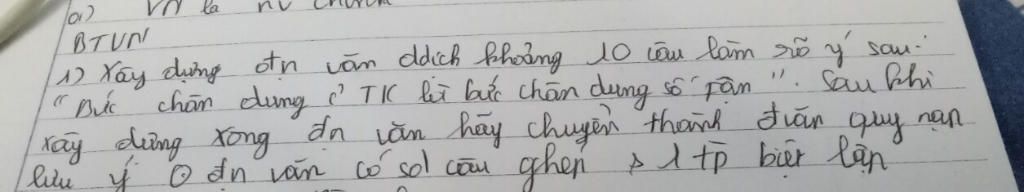 a) VN là nv chính
BTVN
1) Xây dựng đn văn ddịch khoảng 10 câu làm rõ ý sau:
"Bức chân dung TK là bức chân dung số phận". Sau khi
xây dựng xong đn văn hãy chuyển thành đ văn quy nạp
lưu ý đn văn có sd câu ghép 1 tp biệt lập